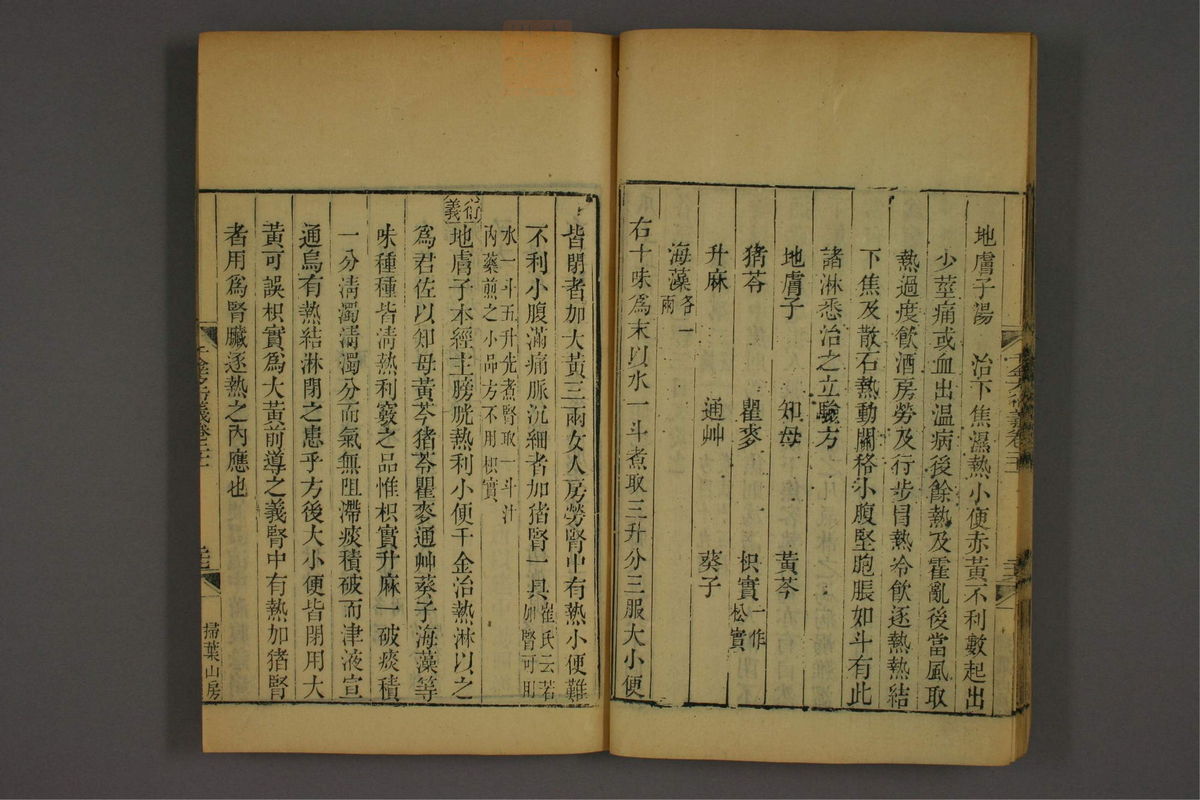 地膚子湯　治下焦濕熱小便赤黃不利數起出
少莖痛或血出温病後餘熱及霍亂後當風取
熱過度飲酒房勞及行步冒熱冷飲逐熱熱結
下焦及散石熱動關格小腹堅胞脹如斗有此
諸淋悉治之立驗方
地膚子　知母　黃芩
猪苓　瞿麥　枳實一作松實
升麻　通艸　葵子
海藻各一兩
右十味爲末以水一斗煮取三升分三服大小便
皆閉者加大黃三兩女人房勞腎中有熱小便難
不利小腹滿痛脈沉細者加猪腎一具崔氏云若加腎可用
水一斗五升先煮腎取一斗汁內藥煎之小品方不用枳實
衍義
地膚子本經主膀胱熱利小便千金治熱淋以之
爲君佐以知母黃芩猪苓瞿麥通艸葵子海藻等
味種種皆淸熱利竅之品惟枳實升麻一破痰積
一分淸濁淸濁分而氣無阻滯痰積破而津液宣
通烏有熱結淋閉之患乎方後大小便皆閉用大
黃可誤枳實爲大黃前導之義腎中有熱加猪腎
者用爲腎臟逐熱之內應也
千金方衍義卷二十一
掃葉山房